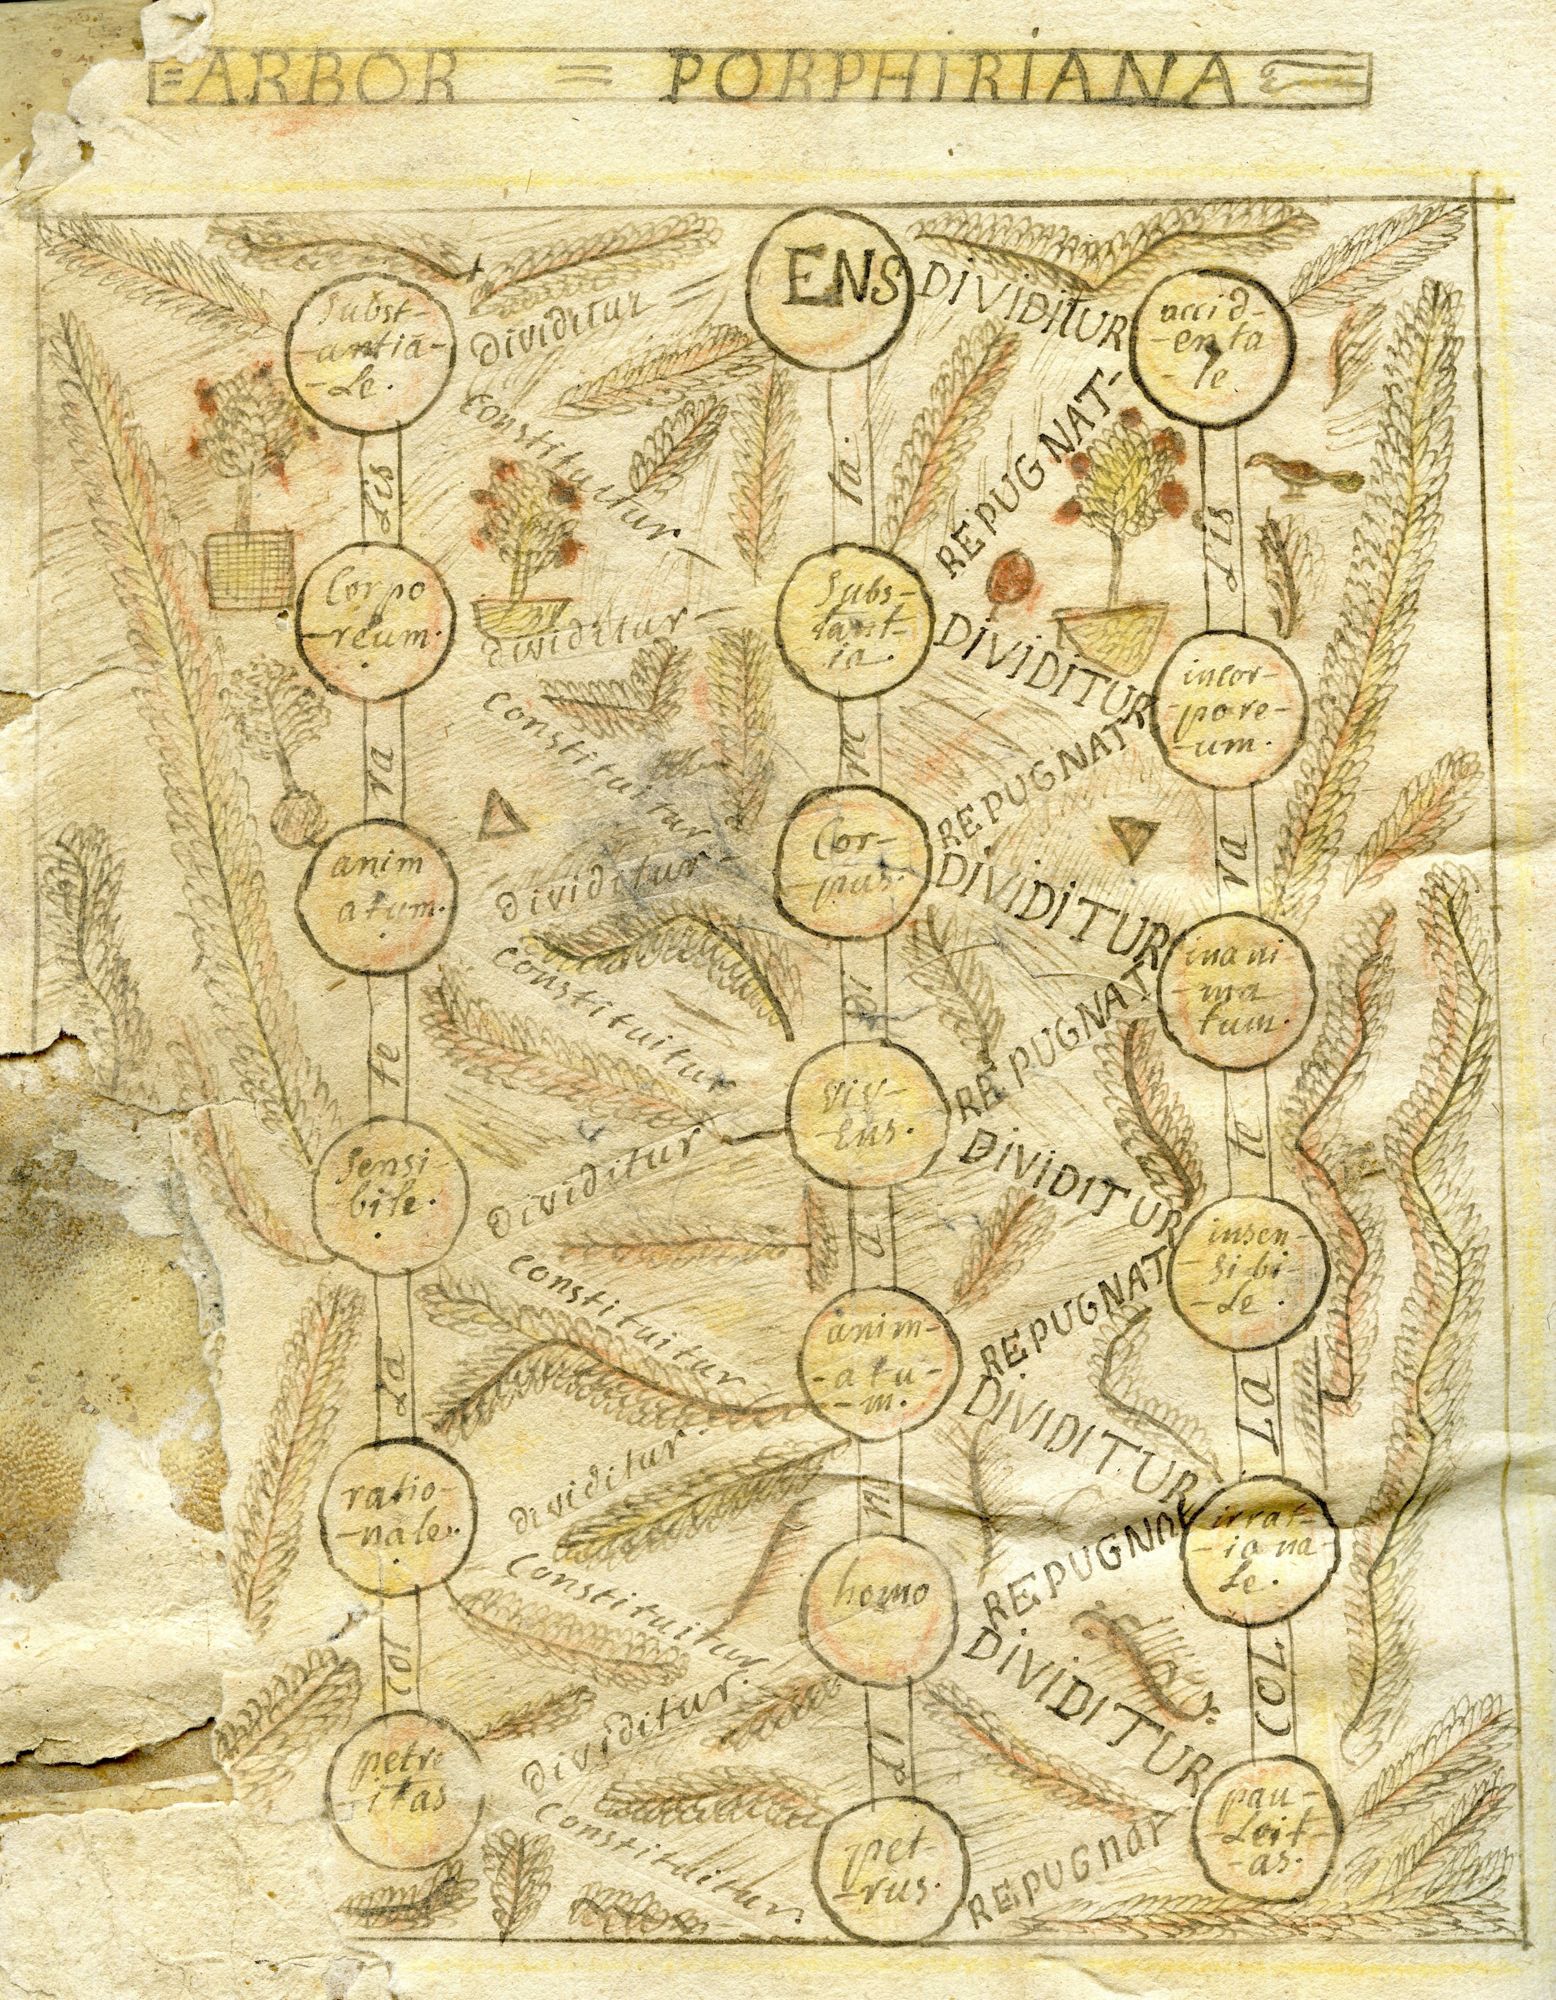 = ARBOR = PORPHIRIANA =
ENS
Subst-
-antiā-
-le.
Dividitur =
DIVIDITUR
accid-
-enta
-le.
constituitur
REPUGNAT-
dis
ta
dis
Corpo
-reum.
Subs-
tant-
ia.
dividitur-
DIVIDITUR
incor-
-pore-
-um.
constituitur
REPUGNAT
ra
m
ra
anim
atum.
Cor-
-pus.
dividitur-
DIVIDITUR
inani-
-ma
tum.
constituitur
REPUGNAT
te
bi
te
Sensi-
bile.
viv-
-ens.
Dividitur
DIVIDITUR
insen-
-si-bi-
-le.
constituitur
REPUGNAT
La
a
La
ratio-
-nale.
anim-
-atu-
-m.
dividitur.
DIVIDITUR
irrat-
-iona-
le.
Constituitur
REPUGNAt
col
n
COL
petre
-itas
homo
dividitur.
DIVIDITUR
pau-
-leit-
-as.
constituitur.
REPUGNAT
di
pet-
-rus.